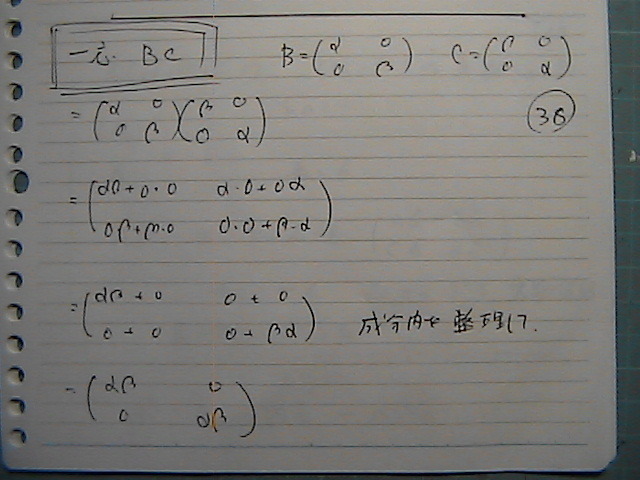 一応. BC B=(α 0 0 β) C=(β 0 0 α)
=(α 0 0 β)(β 0 0 α) 38
=(αβ+0・0 α・0+0α
0β+β・0 0・0+β・α)
=(αβ+0 0+0
0+0 0+βα) 成分内を整理して.
=(αβ 0
0 αβ)